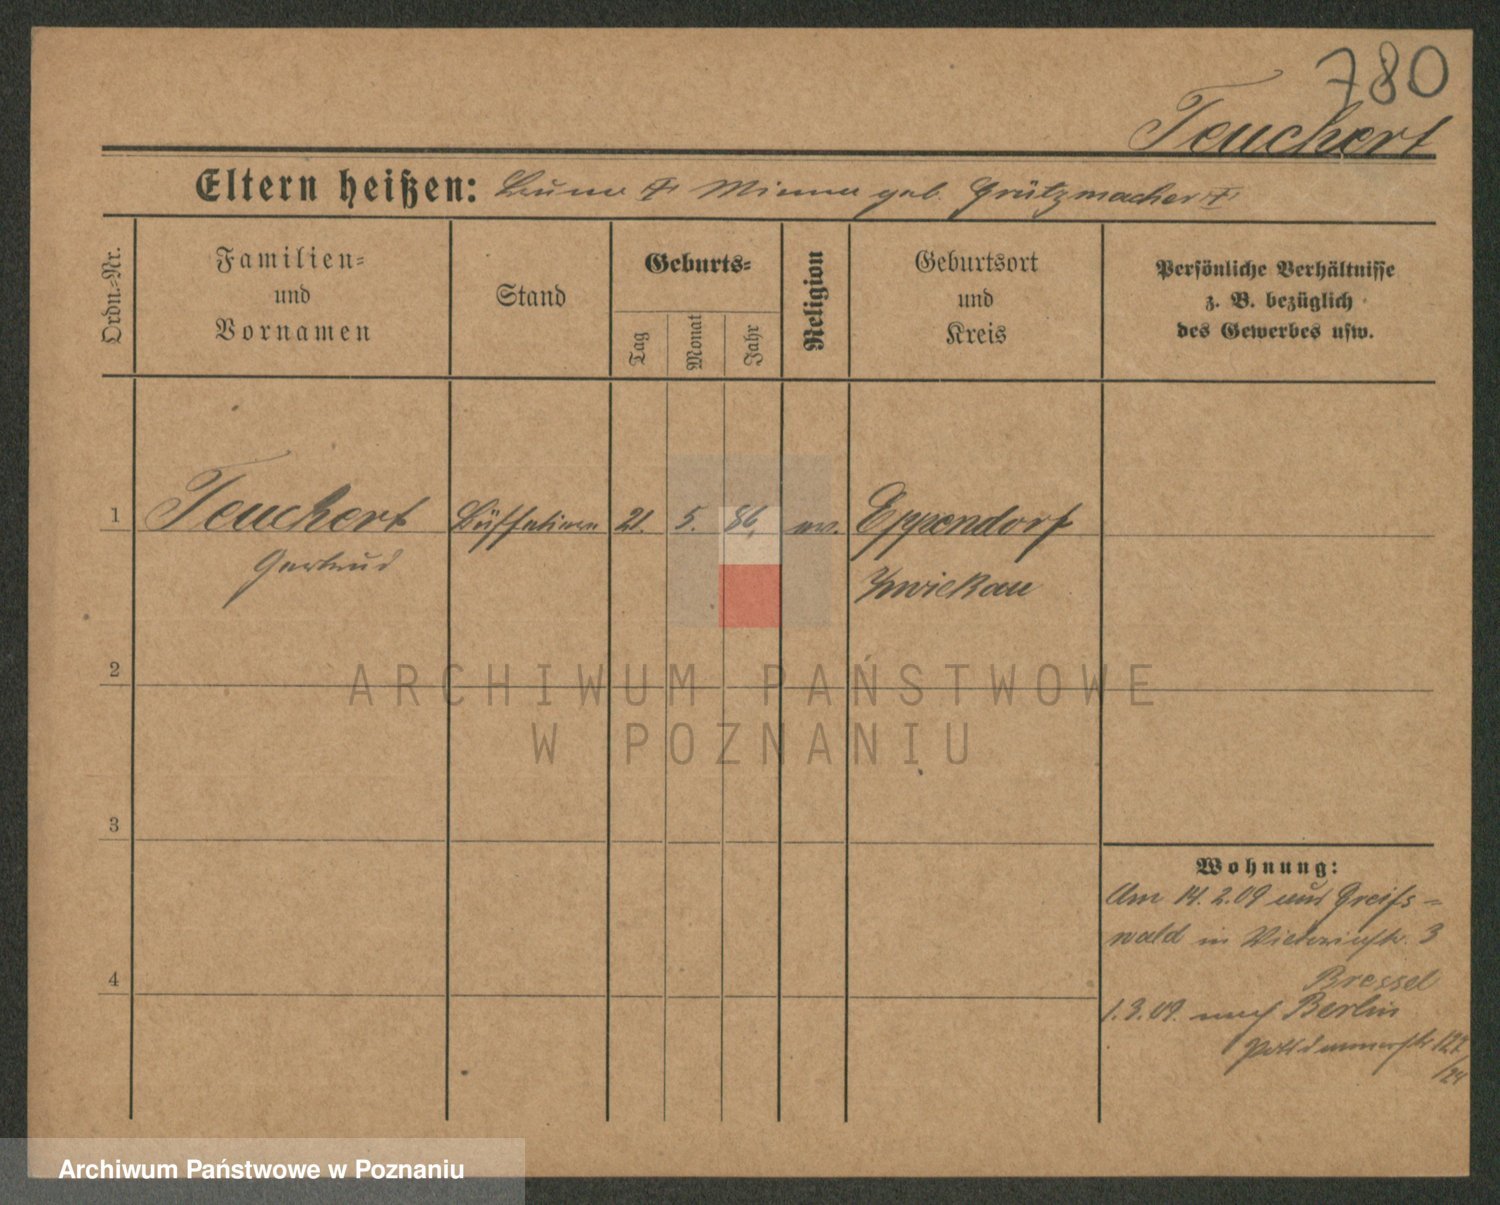 780
Teuchert
Eltern heißen: Bruno † Minna geb. Grützmacher †
Ordn.-Nr.
Familien-
und
Vornamen
Stand
Geburts-
Tag
Monat
Jahr
Religion
Geburtsort
und
Kreis
Persönliche Verhältnisse
z. B. bezüglich
des Gewerbes usw.
1 Teuchert Büffetiere 21. 5. 86, ev. Eppendorf
Gertrud
Zwickau
2
ARCHIWUM PAŃSTWOWE
W POZNANIU
3
Wohnung:
Am 14.2.09 aus Greifs-
wald in Victoriastr. 3
Bressel
4
1.3.09. nach Berlin
Archiwum Państwowe w Poznaniu